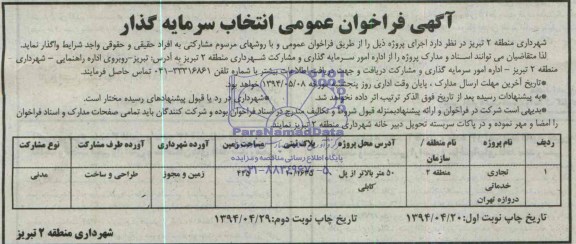 آگهی فراخوان عمومی انتخاب سرمایه گذار
شهرداری منطقه ۲ تبریز در نظر دارد اجرای پروژه ذیل را از طریق فراخوان عمومی و با روشهای مرسوم مشارکتی به افراد حقیقی و حقوقی واجد شرایط واگذار نماید.
لذا متقاضیان می توانند اسناد و مدارک پروژه را از اداره امور سرمایه گذاری و مشارکت شهرداری منطقه ۲ تبریز به آدرس: تبریز-روبروی اداره راهنمایی - شهرداری
منطقه ۲ تبریز - اداره امور سرمایه گذاری و مشارکت دریافت و جهت دریافت اطلاعات بیشتر با شماره تلفن ۳۳۳۱۶۸۶۱-۰۴۱ تماس حاصل فرمایند.
*تاریخ آخرین مهلت ارسال مدارک ، پایان وقت اداری روز پنجشنبه ۱۳۹۴/۰۵/۰۸ خواهد بود.
*به پیشنهادات رسیده بعد از تاریخ فوق الذکر ترتیب اثر داده نخواهد شد. *شهرداری در رد یا قبول پیشنهادهای رسیده مختار است.
*بدیهی است شرکت در فراخوان و ارائه پیشنهاد بمنزله قبول شروط و تکالیف مندرج در اسناد فراخوان بوده و شرکت کنندگان باید تمامی صفحات مدارک و اسناد فراخوان
را امضا و مهر نموده و در پاکات سربسته تحویل دبیر خانه شهرداری منطقه ۲ تبریز نمایند.
ردیف نام پروژه نام منطقه / سازمان آدرس محل پروژه پلاک ثبتی مساحت زمین آورده شهرداری آورده طرف مشارکت نوع مشارکت
۱ تجاری خدماتی دروازه تهران منطقه ۲ ۵۰ متر بالاتر از پل کابلی ۴۳۵ زمین و مجوز طراحی و ساخت مدنی
تاریخ چاپ نوبت اول: ۱۳۹۴/۰۴/۲۰ تاریخ چاپ نوبت دوم: ۱۳۹۴/۰۴/۲۹
شهرداری منطقه ۲ تبریز
ParsNamadData
پایگاه اطلاع رسانی مناقصه و مزایده